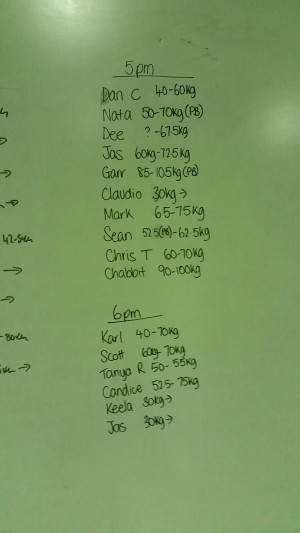 5pm
Dan C 40-60kg
Nata 50-70kg (PB)
Dee ? -67.5kg
Jas 60kg-72.5kg
Garr 85-105kg (PB)
Claudio 30kg→
Mark 65-75kg
Sean 52.5(PB)-62.5kg
Chris T 60-70kg
Chabbit 90-100kg
6pm
Karl 40-70kg
Scott 60kg-70kg
Tanya R 50-55kg
Candice 52.5-75kg
Keela 30kg→
Jas 30kg→